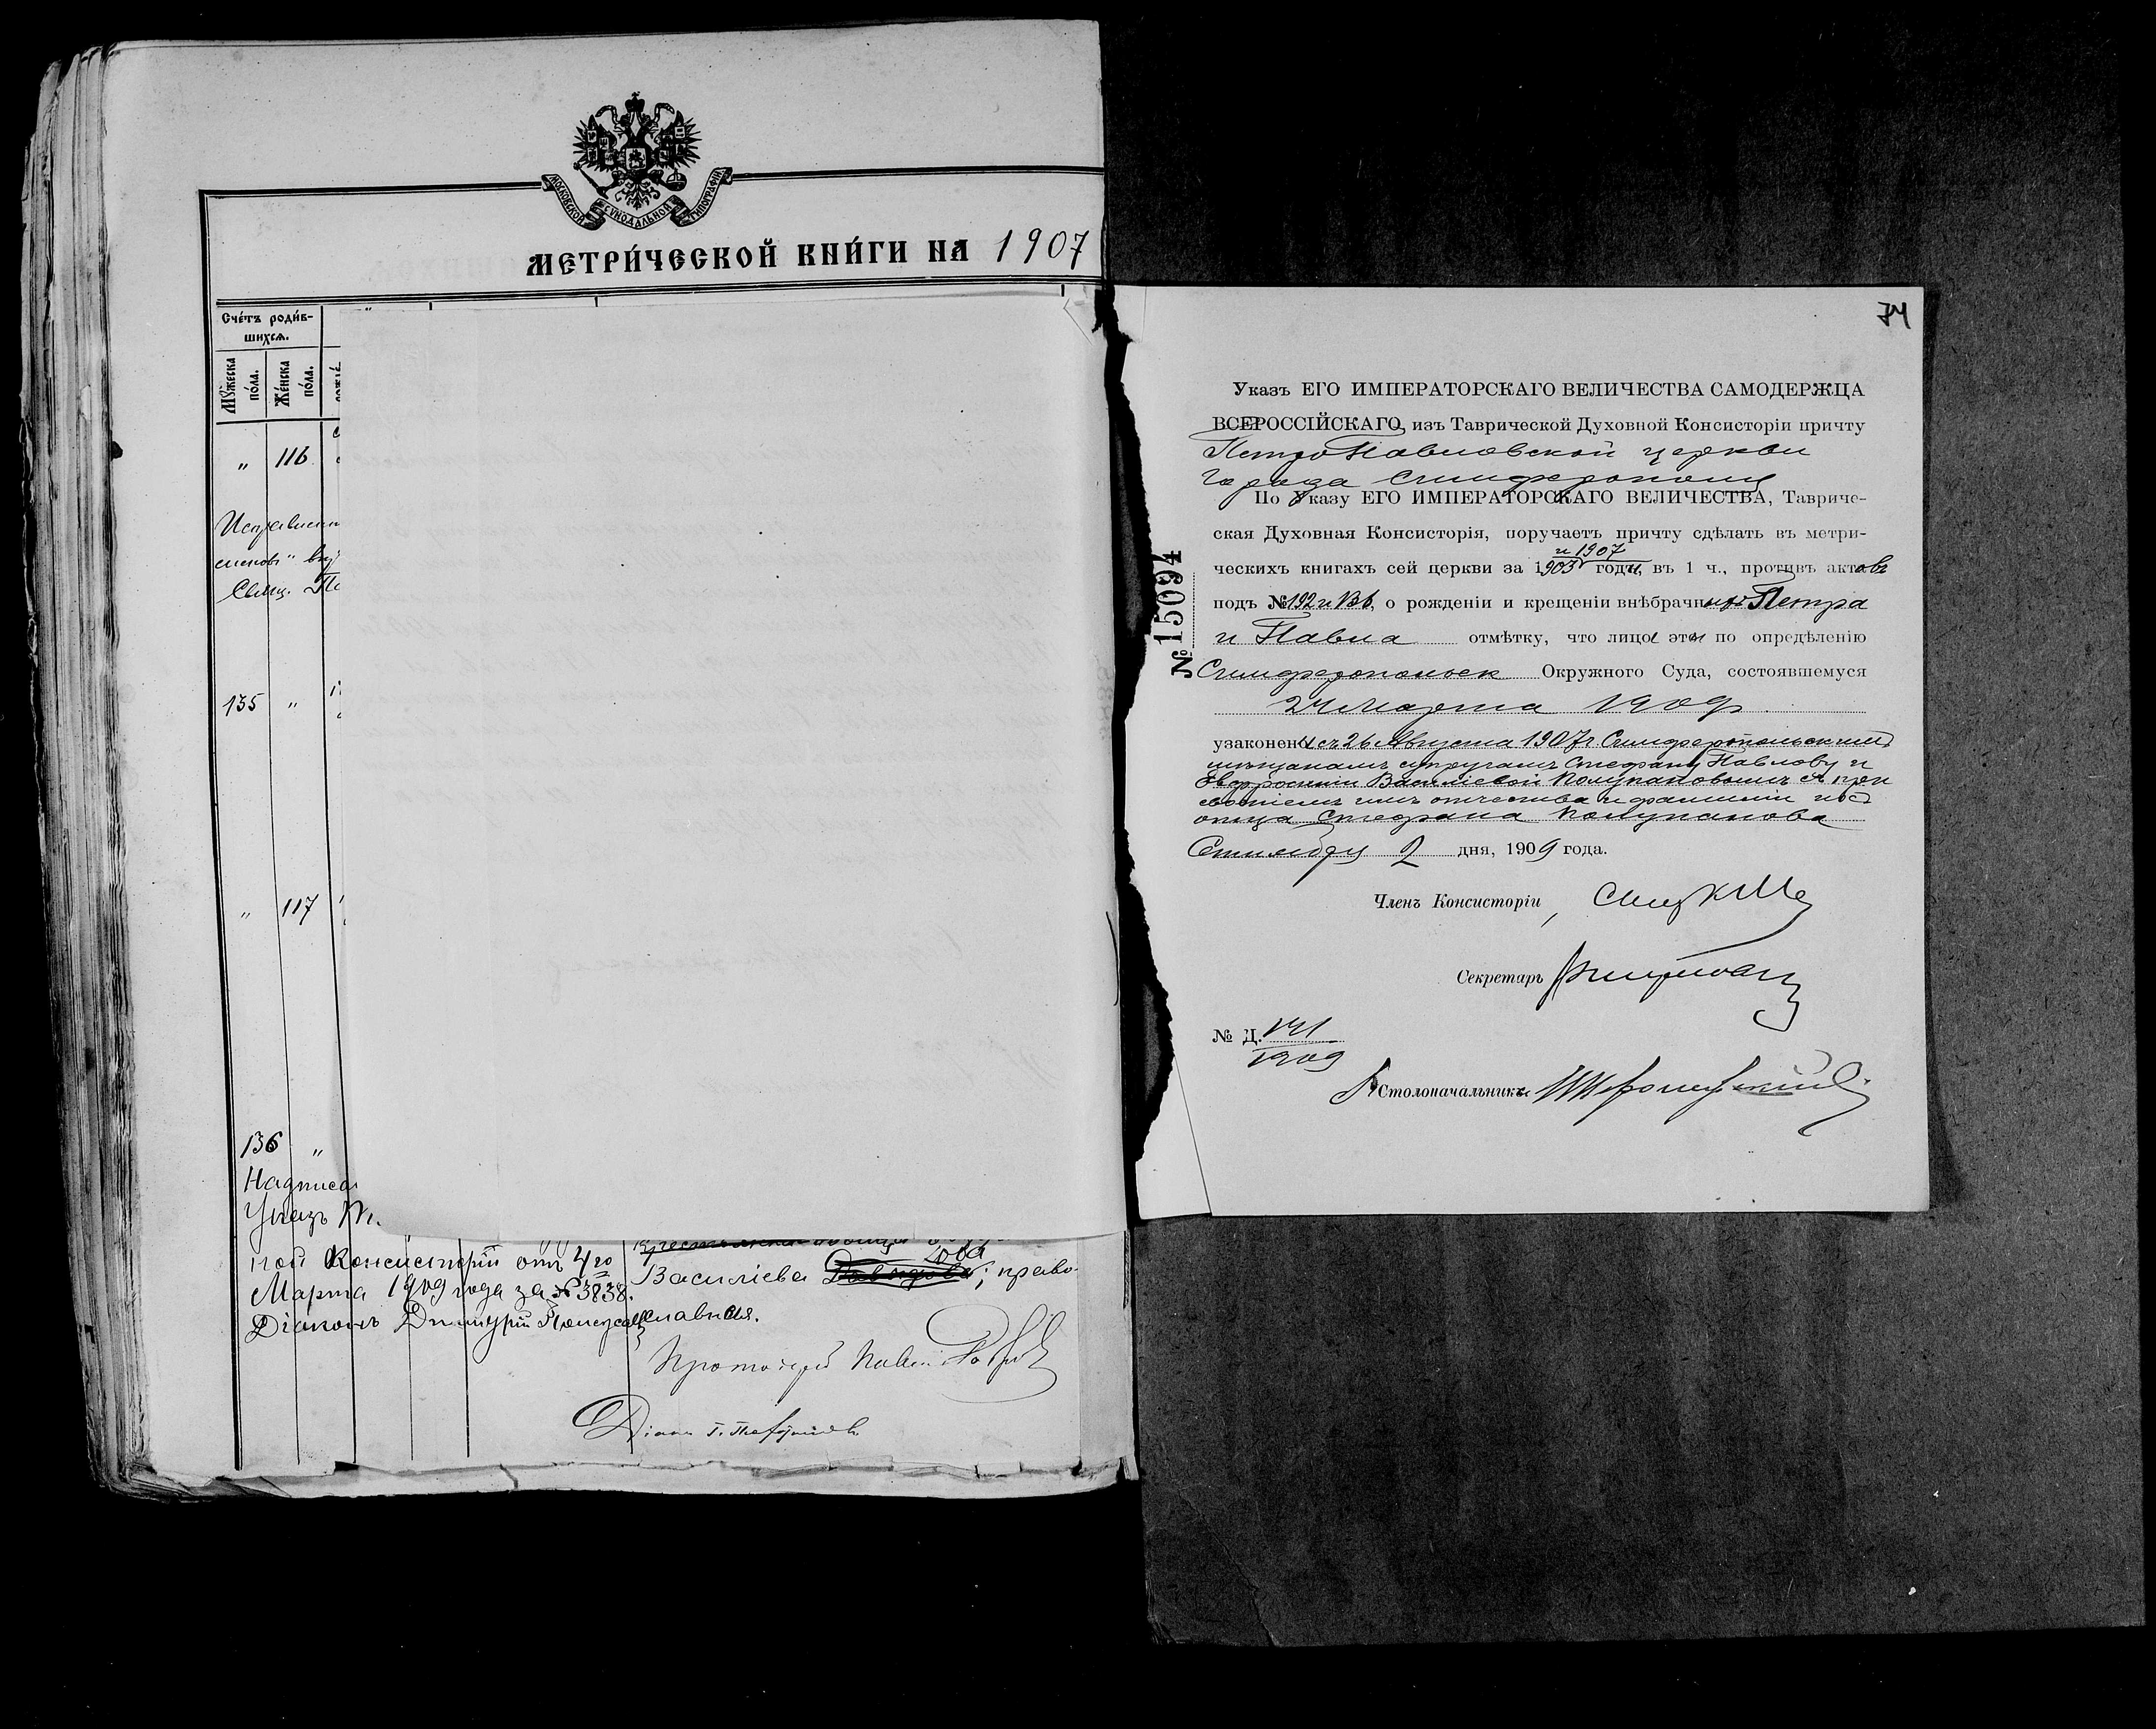 МОСКОВСКОЙ СѴНОДАЛЬНОЙ ТИПОГРАФІИ
МЕТРИ́ЧЕСКОЙ КНИ́ГИ НА 1907
Сче́тъ роди́в-
шихсѧ.
Мꙋ́жеска
по́ла.
Же́нска
по́ла.
„ 116
135 „
„ 117
136 „
Надписа
Указъ
ной Консисторіи отъ 4го
Марта 1909 года за № 3838.
Діаконъ Димитрій
Василіева ; право-
славныя.
Протоіерей Павел
Діак. Г.
74
Указъ ЕГО ИМПЕРАТОРСКАГО ВЕЛИЧЕСТВА САМОДЕРЖЦА
ВСЕРОССІЙСКАГО, изъ Таврической Духовной Консисторіи причту
Петро Павловской церкви
города Симферополя
По Указу ЕГО ИМПЕРАТОРСКАГО ВЕЛИЧЕСТВА, Тавриче-
ская Духовная Консисторія, поручаетъ причту сдѣлать въ метри-
и 1907
ческихъ книгахъ сей церкви за 1903 годы, въ 1 ч., противъ актовъ
подъ № 192 и 136, о рожденіи и крещеніи внѣбрачныхъ Петра
и Павла отмѣтку, что лица эти по опредѣленію
Симферопольск Окружного Суда, состоявшемуся
24 марта 1909
узаконены съ 26 Августа 1907 г. Симферопольскими
мѣщанами супругами Стефану Павлову и
Евфросиніи Василіевой Полупановымъ съ при
своеніемъ имъ отчества и фамиліи по
отца Стефана Полупанова
Сентября 2 дня, 1909 года.
№ 15094
Членъ Консисторіи,
Секретарь
№ Д. 141
1909
Столоначальника